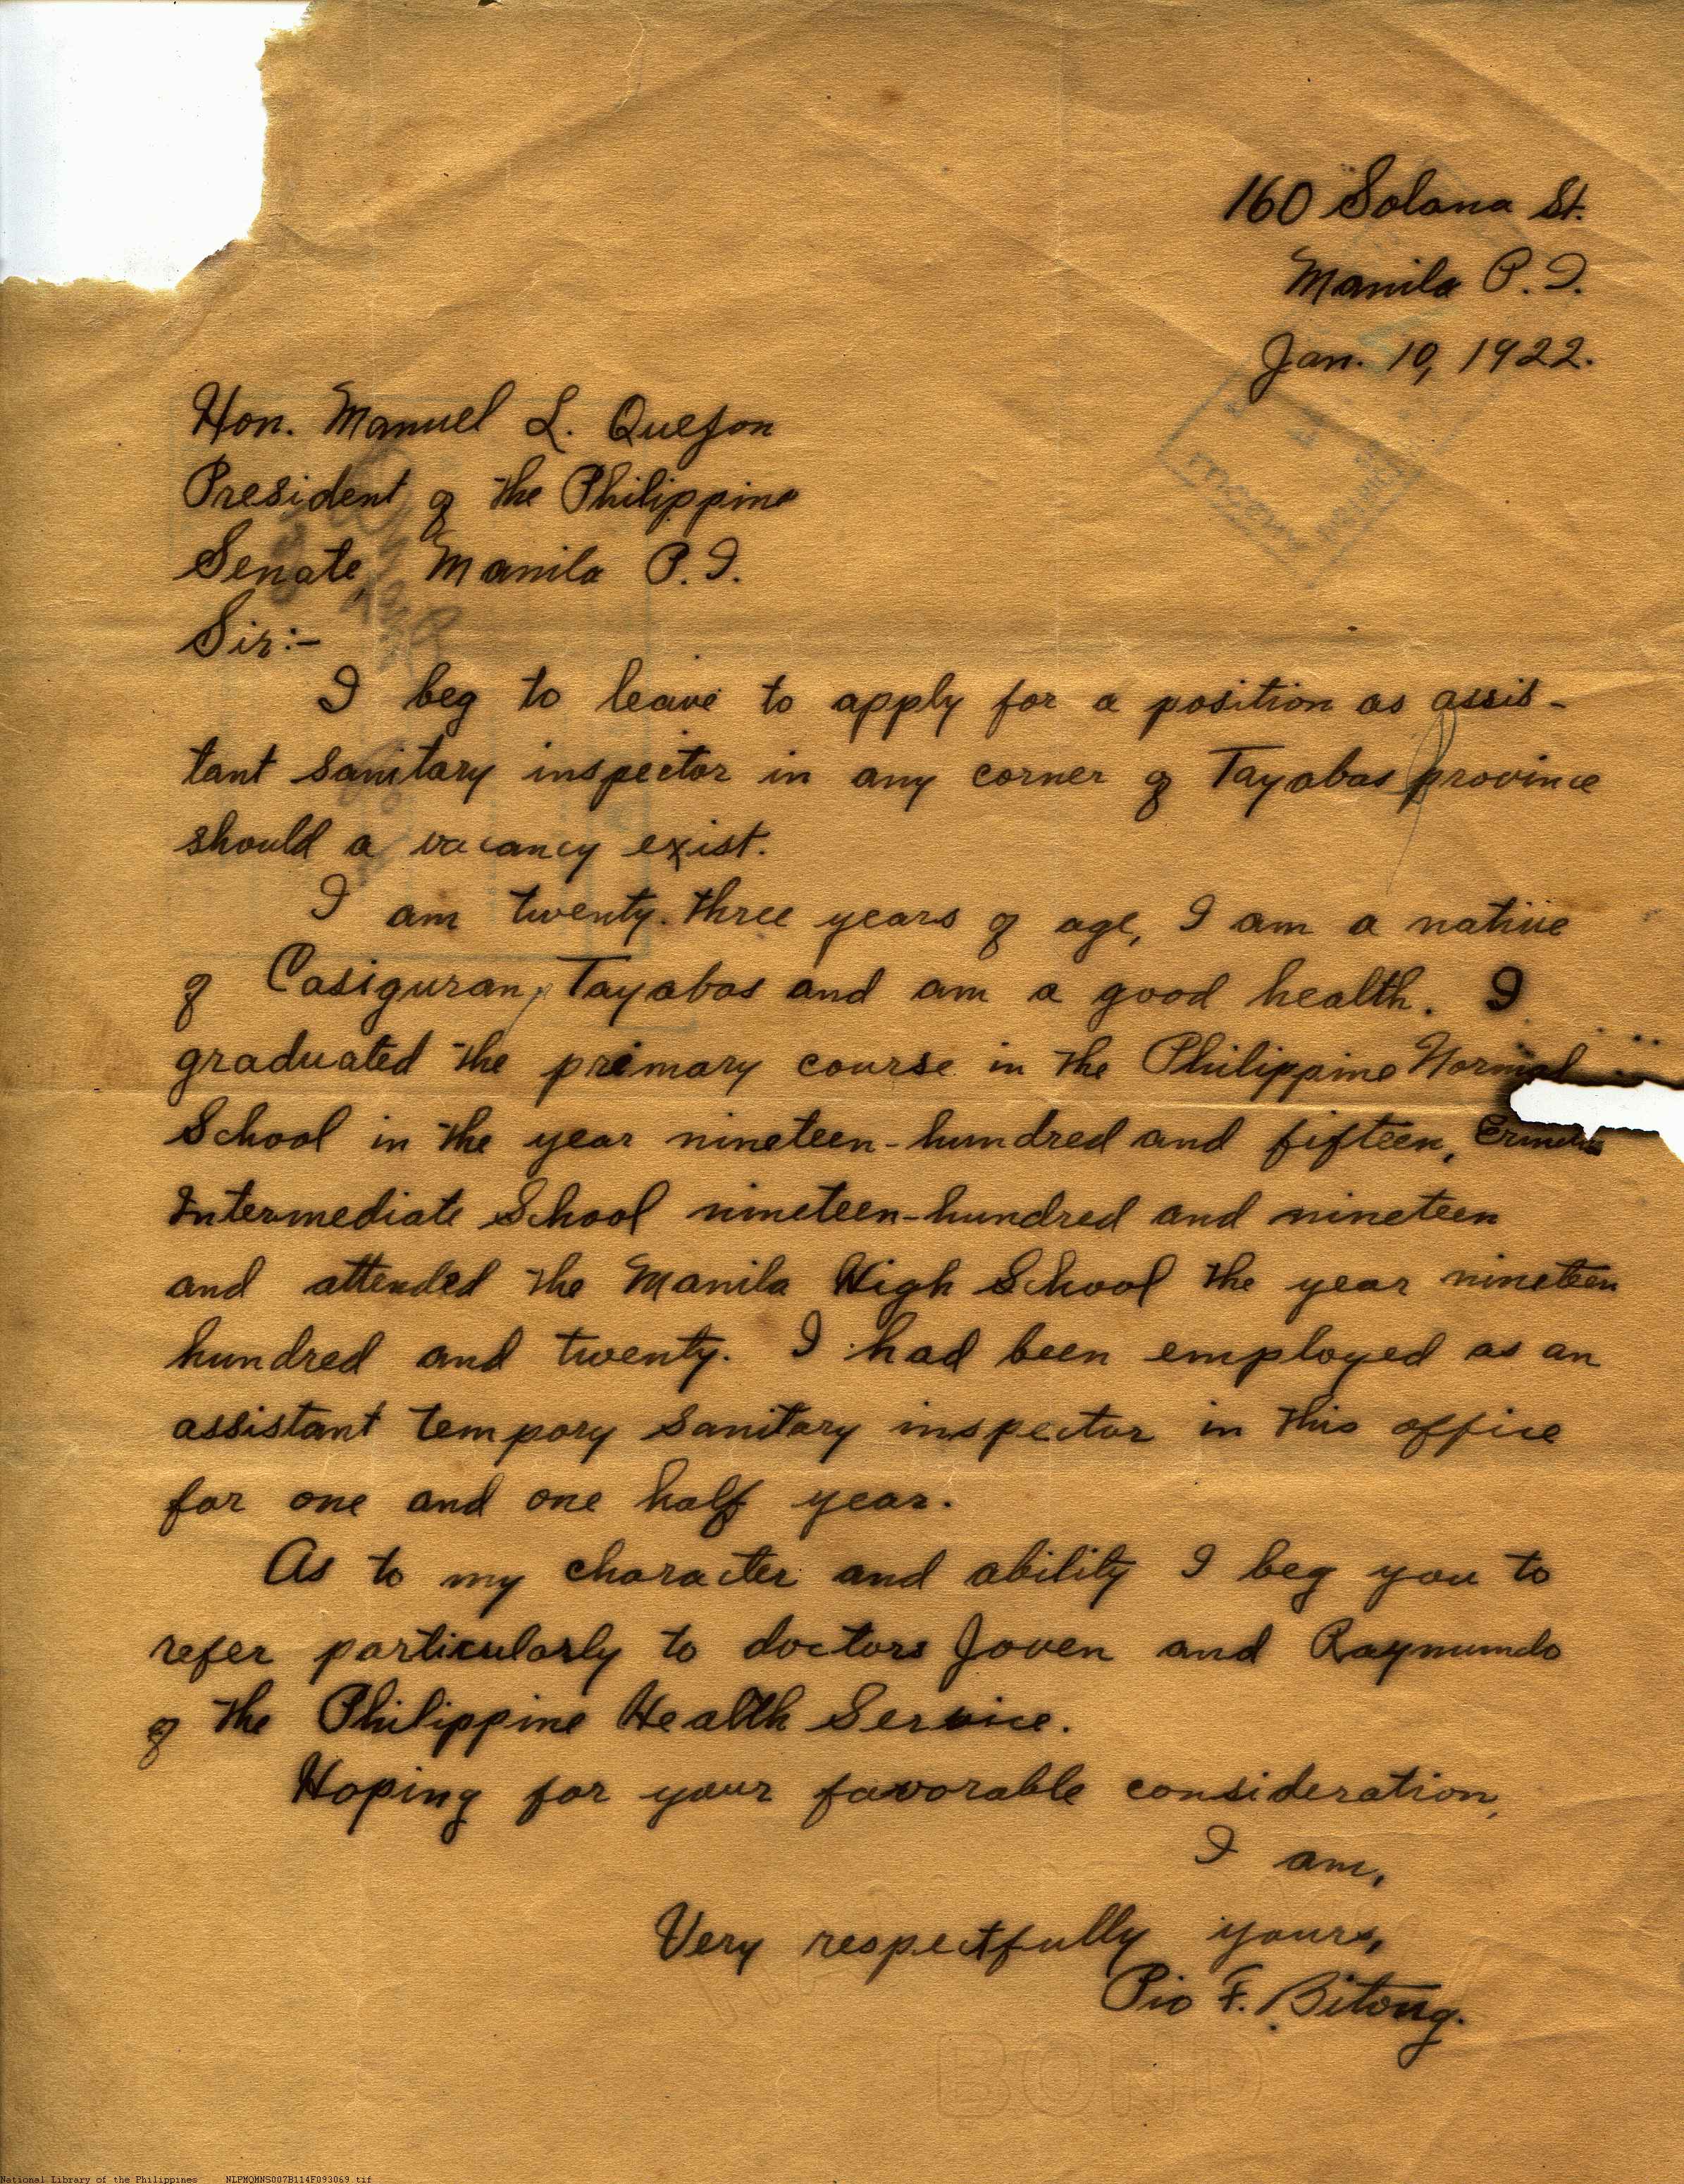 160 Solana St.
Manila P. I.
Jan. 10, 1922.
Hon. Manuel L. Quezon
President of the Philippine
Senate, Manila P. I.
Sir:-
I beg to leave to apply for a position as assis-
tant sanitary inspector in any corner of Tayabas province
should a vacancy exist.
I am twenty-three years of age, I am a native
of Casiguran, Tayabas and am a good health. I
graduated the primary course in the Philippine Normal
School in the year nineteen-hundred and fifteen,
Intermediate School nineteen-hundred and nineteen
and attended the Manila High School the year nineteen
hundred and twenty. I had been employed as an
assistant tempory sanitary inspector in this office
for one and one half year.
As to my character and ability I beg you to
refer particularly to doctors Joven and Raymundo
of the Philippine Health Service.
Hoping for your favorable consideration,
I am,
Very respectfully yours,
Pio F. Bitong.
BOND
National Library of the Philippines NLPMQMNS007B114F093069.tif